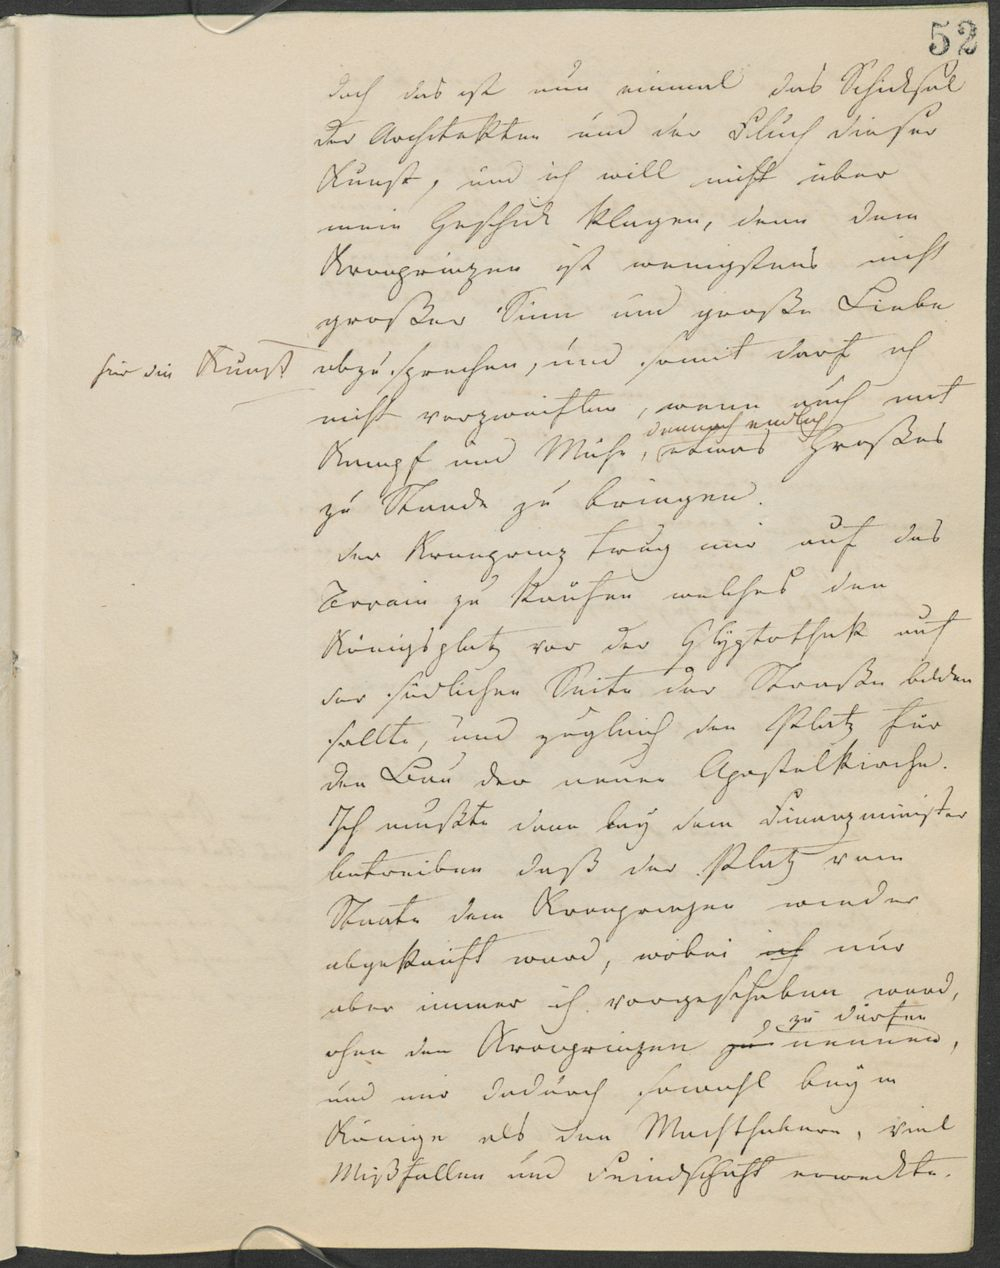 52
doch das ist nun einmal das Schicksal
der Architekten und der Fluch dieser
Kunst, und ich will nicht über
mein Geschick klagen, denn dem
Kronprinzen ist wenigstens nicht
großer Sinn und große Liebe
für die Kunst abzusprechen, und somit darf ich
nicht verzweiflen, wenn auch mit
dennoch endlich
Kampf und Mühe, etwas Großes
zu Stande zu bringen.
Der Kronprinz trug mir auf das
Terrain zu kaufen welches den
Königsplatz vor der Glyptothek auf
der südlichen Seite der Straße bilden
sollte, und zugleich den Platz für
den Bau der neuen Apostelkirche.
Ich mußte dann bey dem Finanzminister
betreiben daß der Platz vom
Staate dem Kronprinzen wieder
abgekauft ward, wobei ich nur
aber immer ich vorgeschoben ward,
zu dürfen
ohne den Kronprinzen zu nennen,
und mir dadurch sowohl beym
Könige als den Machthabern, viel
Mißfallen und Feindschaft erweckte.